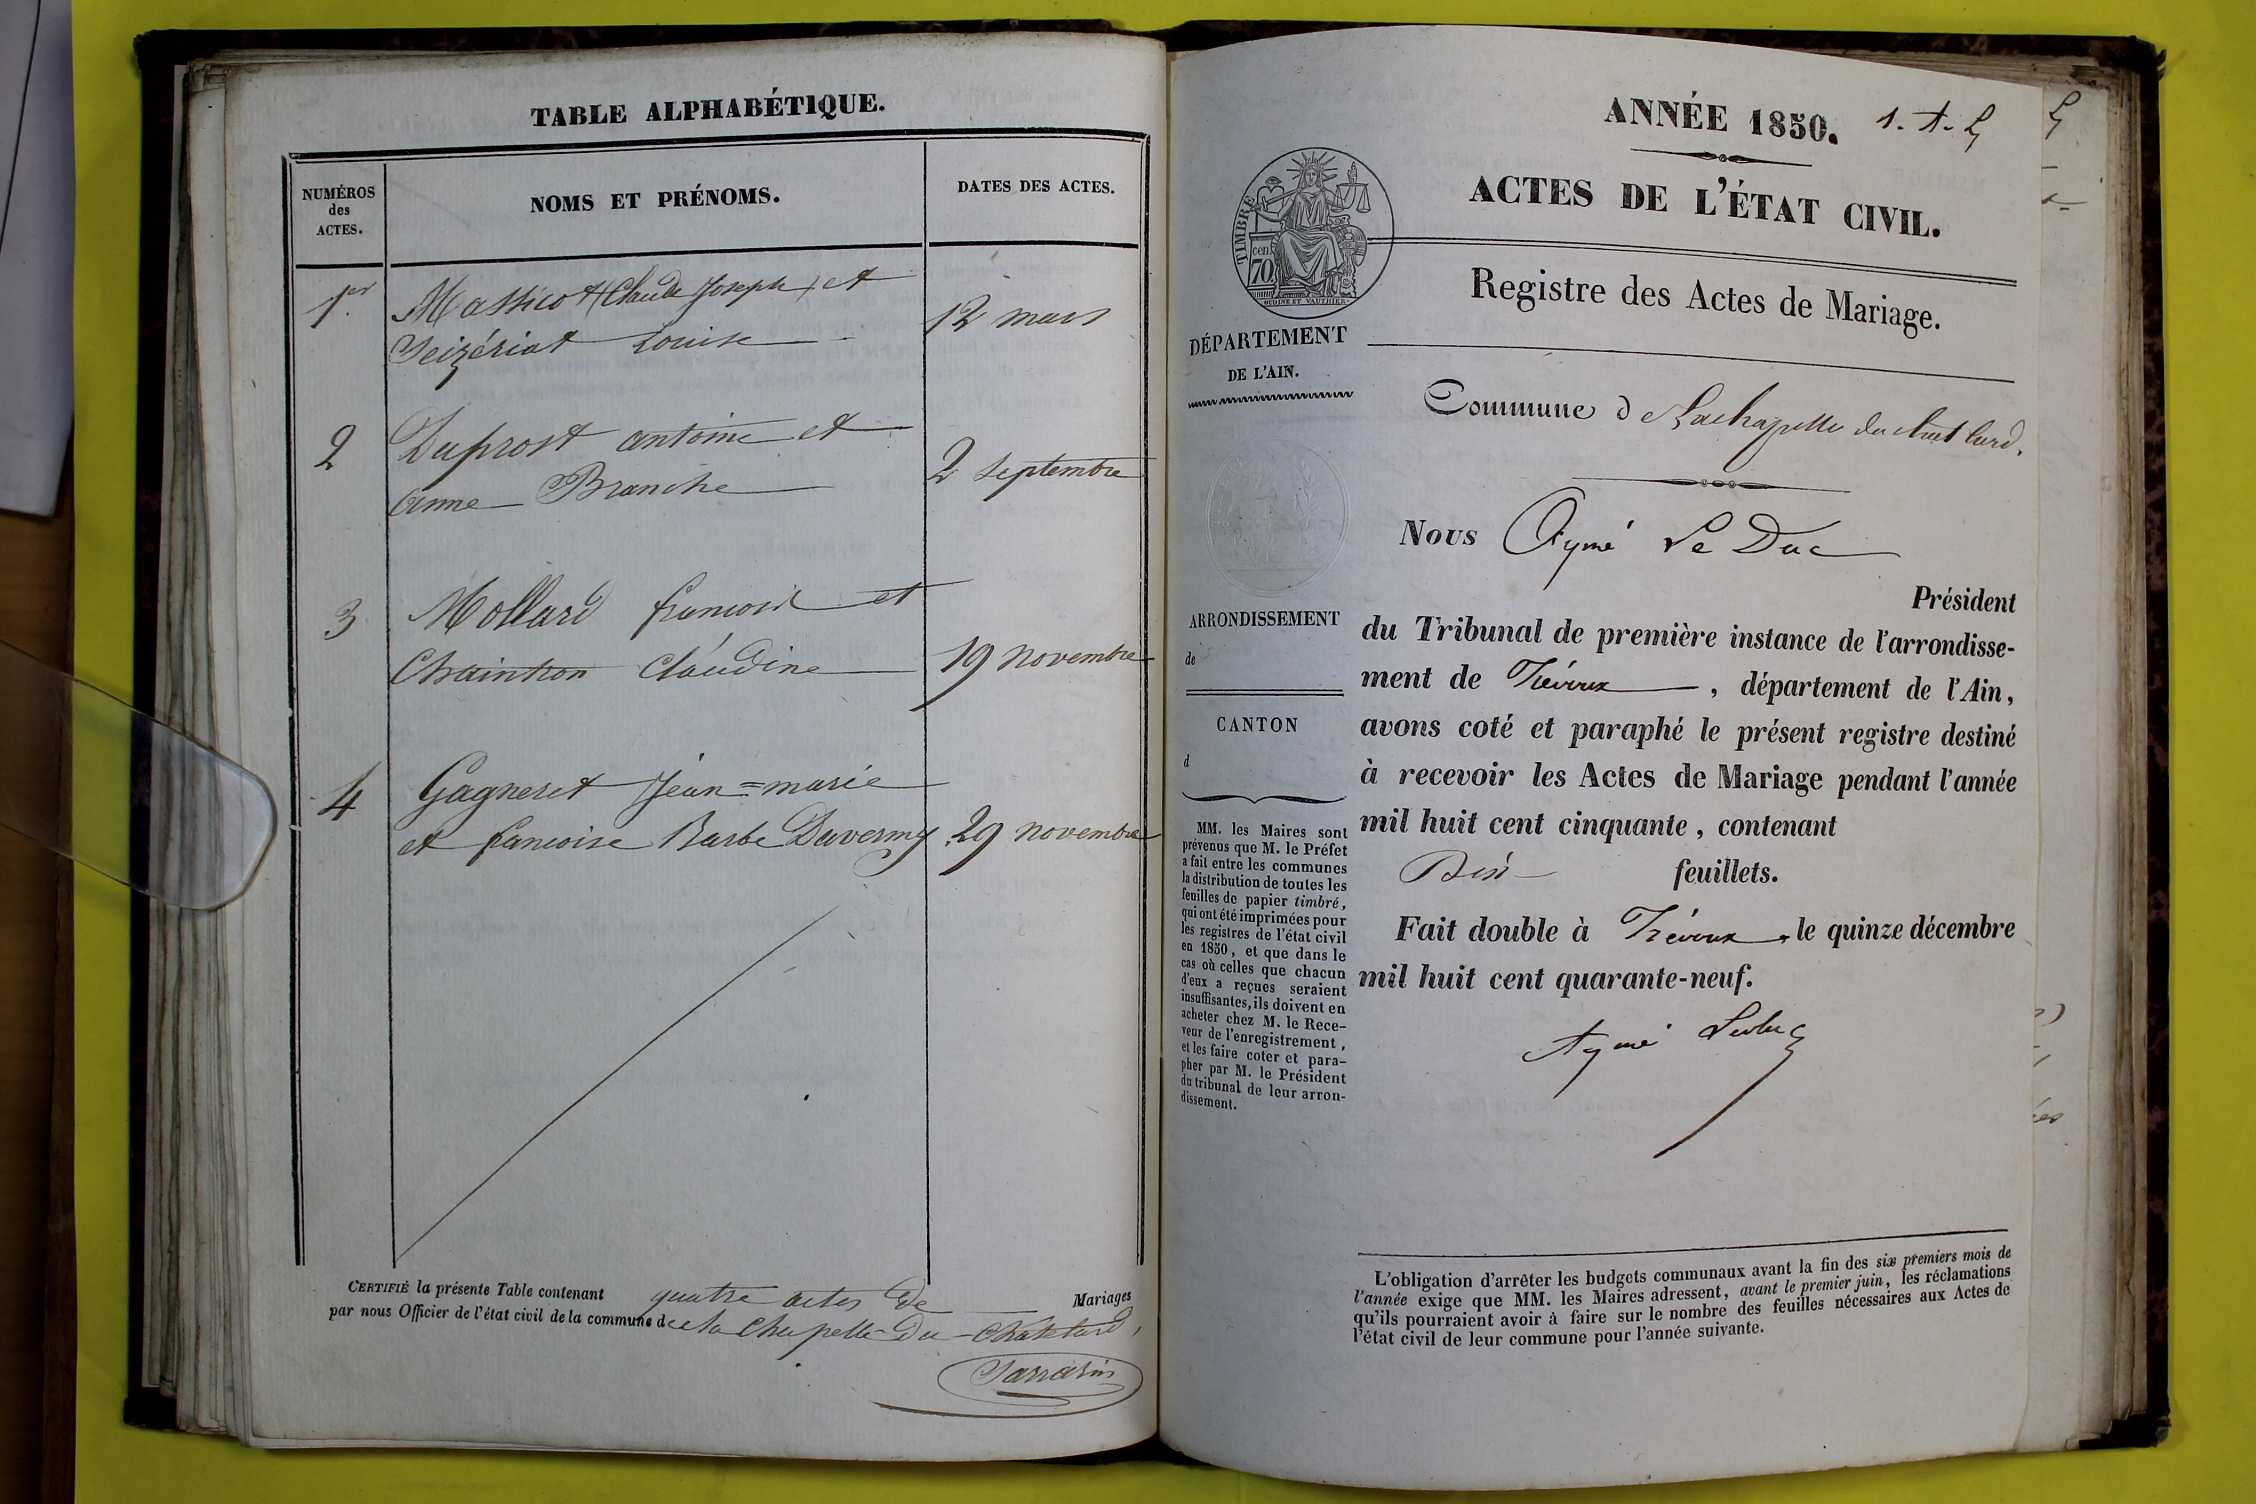 TABLE ALPHABÉTIQUE.
NUMÉROS
des
ACTES.
NOMS ET PRÉNOMS.
DATES DES ACTES.
1er
Massicot (Claude Joseph) et
Seizériat Louise
12 mars
2
Duprost antoine et
anne Branche
2 septembre
3
Mollard francois et
Chaintron Claudine
19 novembre
4
Gagneret Jean=marie
et francoise Barbe Duverny
29 novembre
CERTIFIÉ la présente Table contenant quatre actes de Mariages
par nous Officier de l'état civil de la commune de la Chapelle-Du-Chatelard,
Sarrasin
ANNÉE 1850.
1. A. L
ACTES DE L'ÉTAT CIVIL.
TIMBRE
70 cen
Registre des Actes de Mariage.
DÉPARTEMENT
DE L'AIN.
Commune de Lachapelle du chatelard.
Nous Aymé Le Duc
Président
du Tribunal de première instance de l'arrondisse-
ment de Trévoux, département de l'Ain,
avons coté et paraphé le présent registre destiné
à recevoir les Actes de Mariage pendant l'année
mil huit cent cinquante, contenant
feuillets.
Fait double à Trévoux, le quinze décembre
mil huit cent quarante-neuf.
Aymé Leduc
ARRONDISSEMENT
de
CANTON
d
MM. les Maires sont
prévenus que M. le Préfet
a fait entre les communes
la distribution de toutes les
feuilles de papier timbré,
qui ont été imprimées pour
les registres de l'état civil
en 1850, et que dans le
cas où celles que chacun
d'eux a reçues seraient
insuffisantes, ils doivent en
acheter chez M. le Rece-
veur de l'enregistrement,
et les faire coter et para-
pher par M. le Président
du tribunal de leur arron-
dissement.
L'obligation d'arrêter les budgets communaux avant la fin des six premiers mois de
l'année exige que MM. les Maires adressent, avant le premier juin, les réclamations
qu'ils pourraient avoir à faire sur le nombre des feuilles nécessaires aux Actes de
l'état civil de leur commune pour l'année suivante.